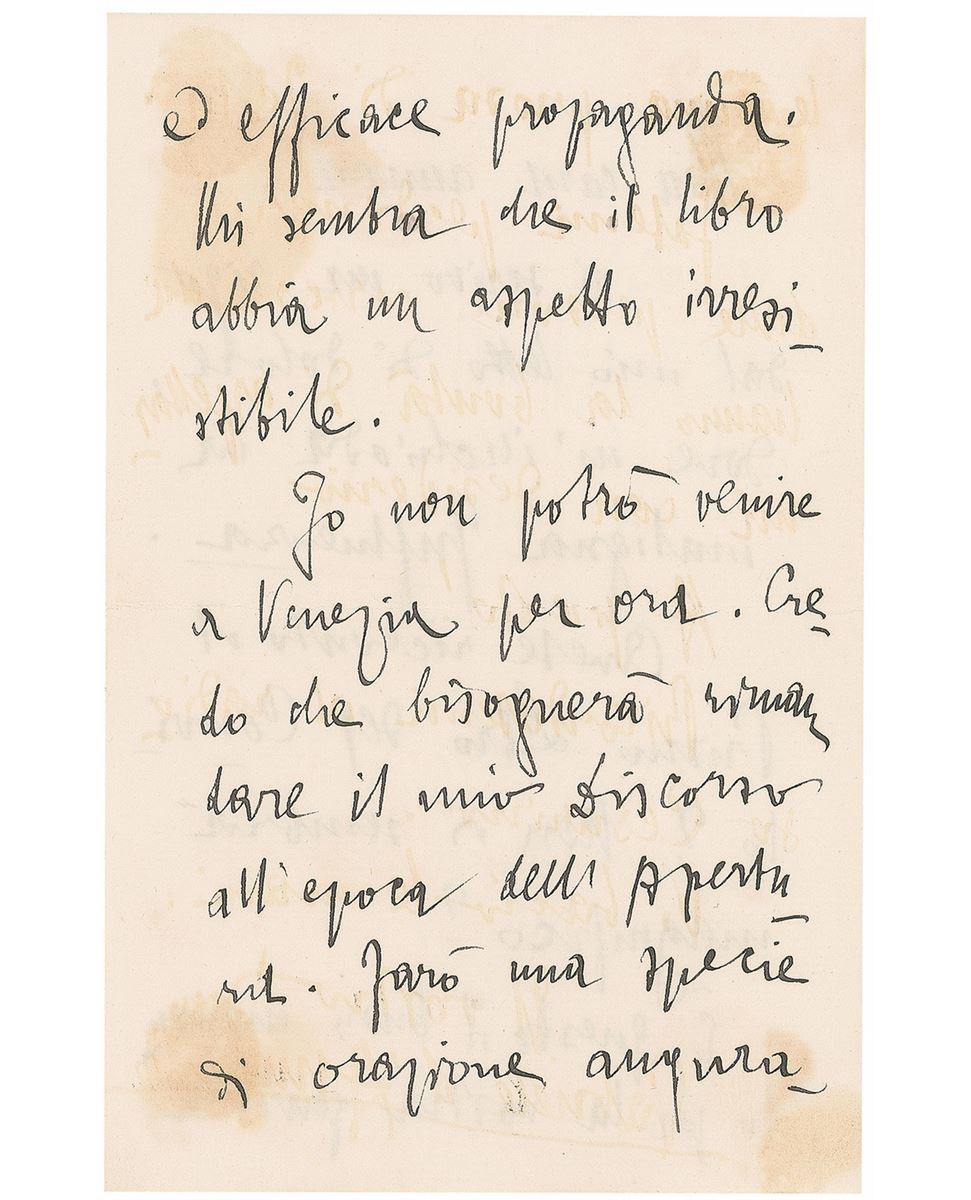 ed efficace propaganda.
Mi sembra che il libro
abbia un aspetto irresi-
stibile.
Io non potrò venire
a Venezia per ora. Cre-
do che bisognerà riman-
dare il mio Discorso
all'epoca dell' Apertu-
ra. Farò una specie
di orazione augura-